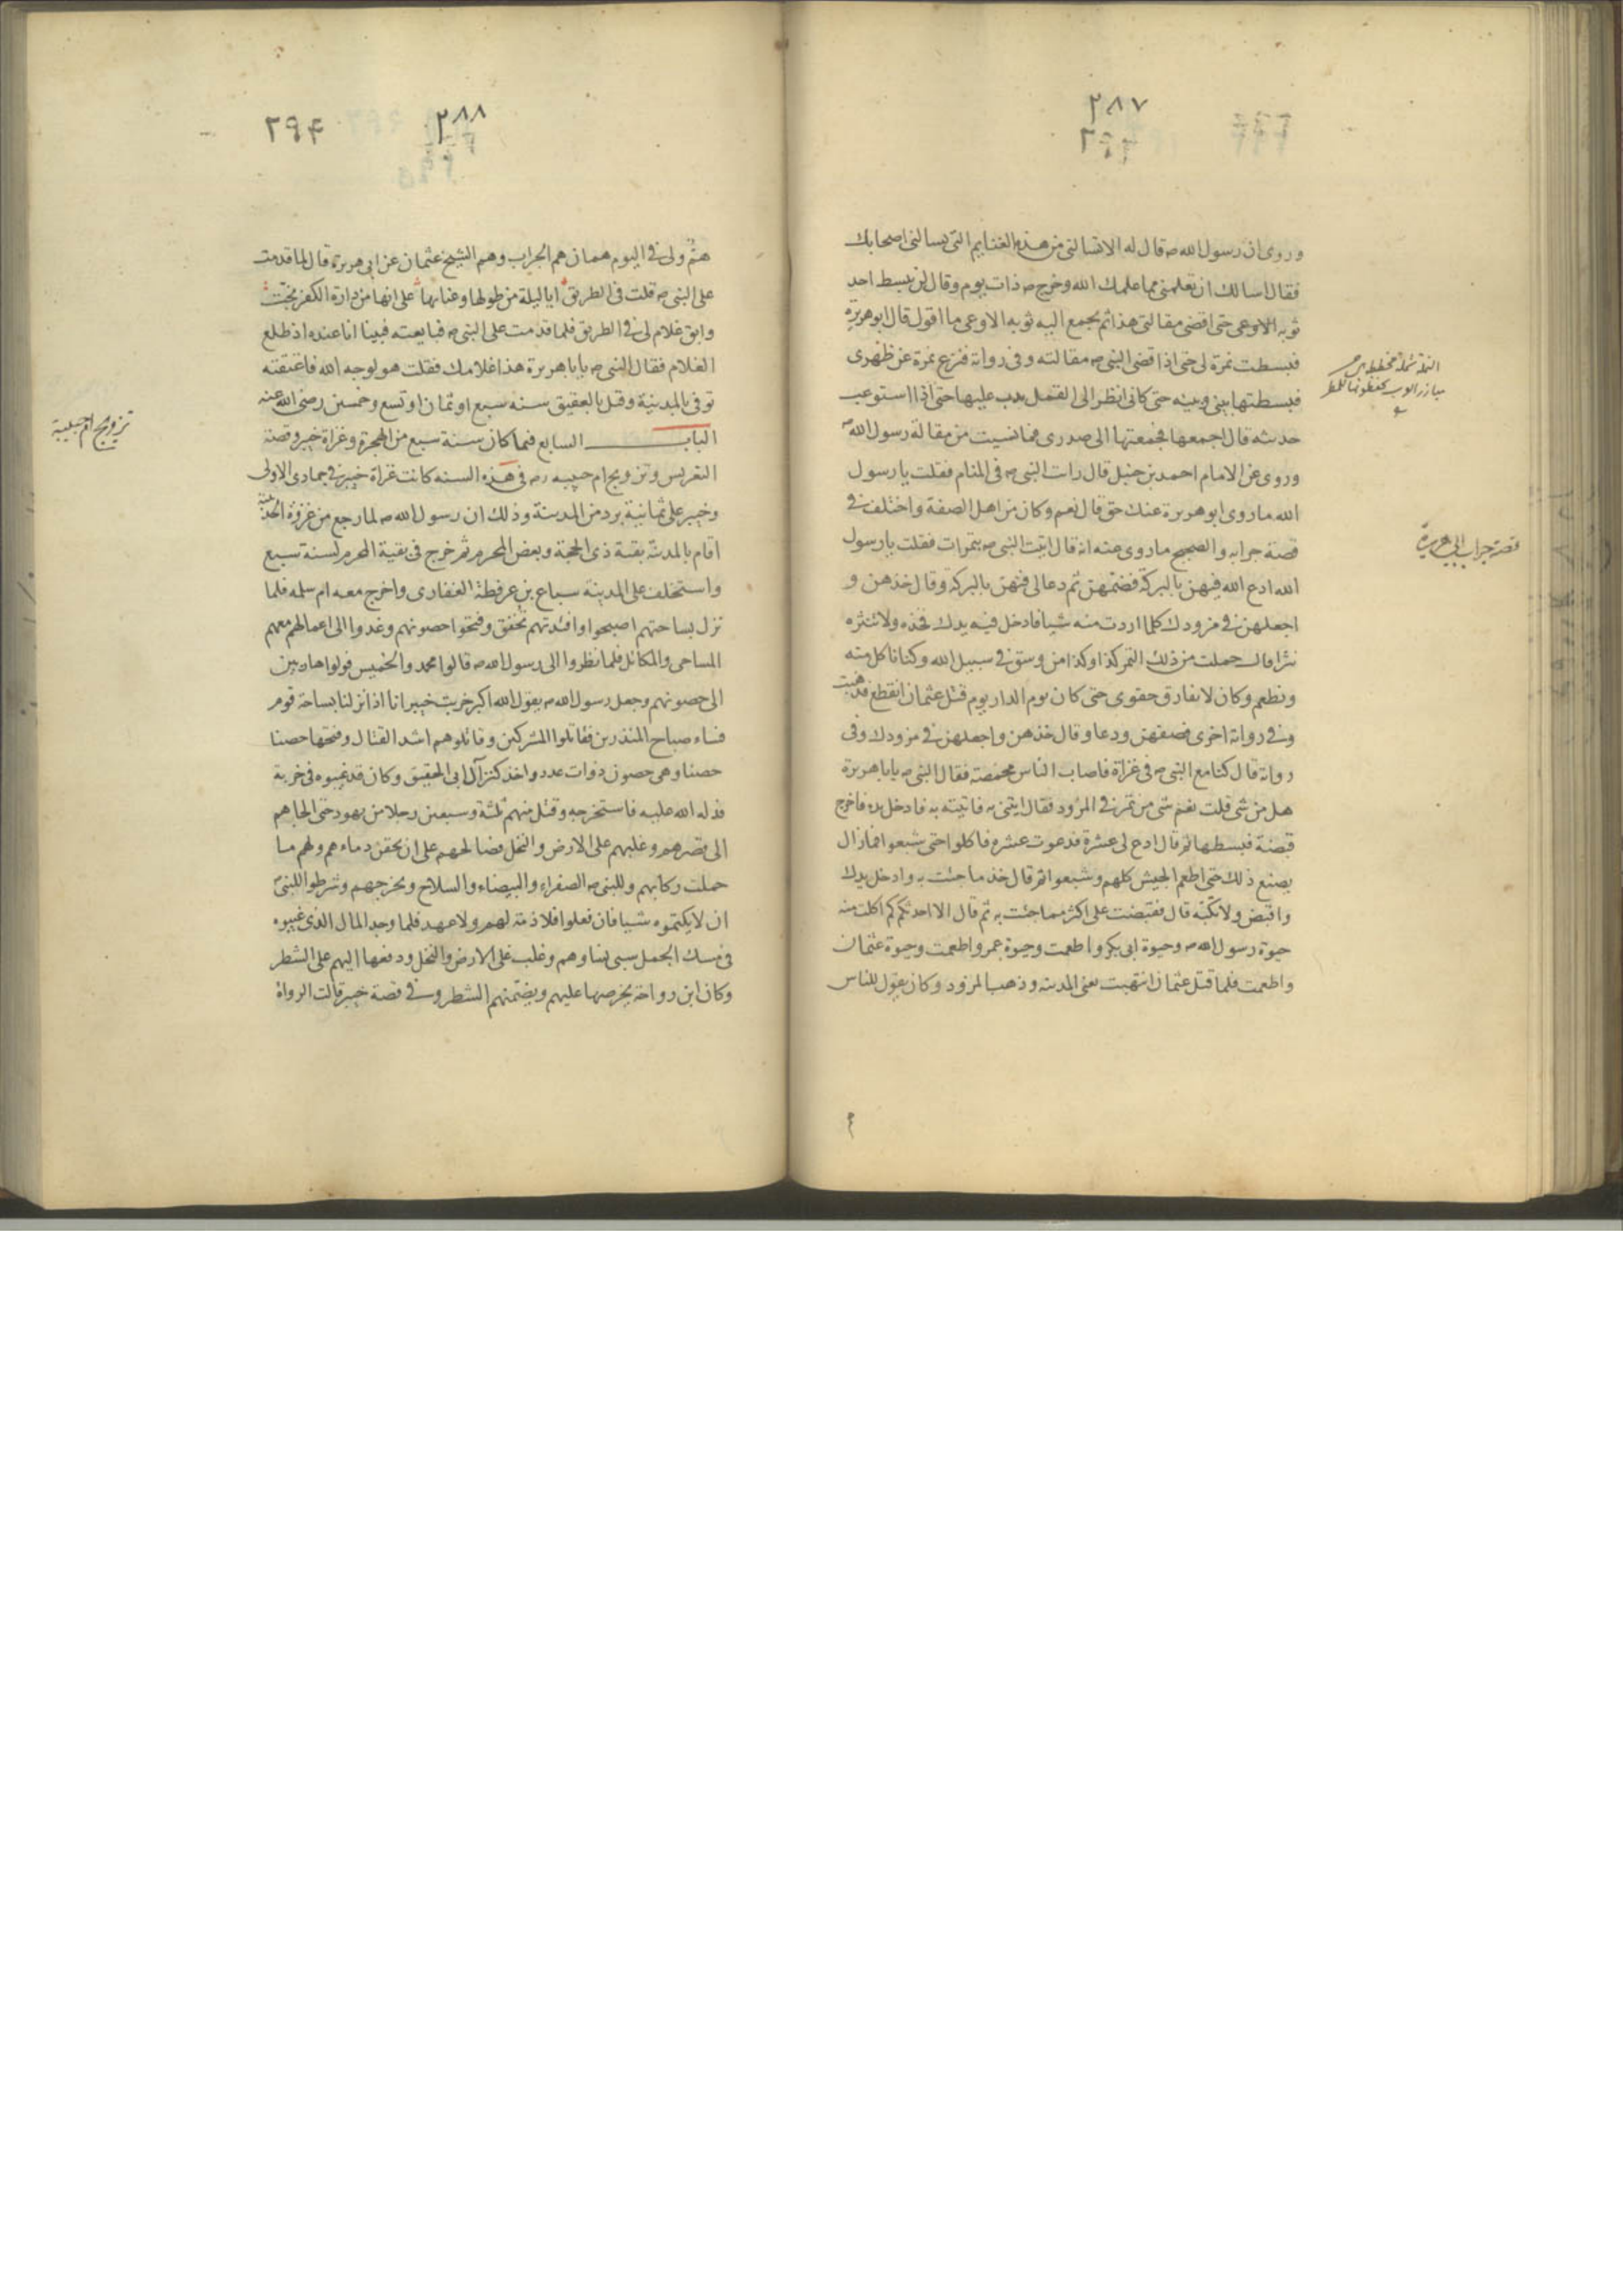 ٢٨٧
وروى ان رسول الله ص قال له الا تسالنى من هذه الغنايم التى يسالنى اصحابك
فقال اسالك ان تعلمنى مما علمك الله وخرج ص ذات يوم وقال لن يبسط احد
ثوبه الاوعى حتى اقضى مقالتى هذا ثم يجمع اليه ثوبه الاوعى ما اقول قال ابوهريرة
فبسطت نمرة لى حتى اذا قضى النبى ص مقالته وفى رواية فنزع نمرة عن ظهرى
فبسطتها بينى وبينه حتى كانى انظر الى القمل يدب عليها حتى اذا استوعب
حديثه قال اجمعها فجمعتها الى صدرى فما نسيت من مقالة رسول الله ص
وروى عن الامام احمد بن حنبل قال رات النبى ص فى المنام فقلت يا رسول
الله ما روى ابو هريرة عنك حق قال نعم وكان من اهل الصفة واختلف فى
قصة جرابه والصحيح ما روى عنه انه قال اتيت النبى ص بتمرات فقلت يا رسول
الله ادع الله فيهن بالبركة فضمهن ثم دعا لى فيهن بالبركة وقال خذهن و
اجعلهن فى مزودك كلما اردت منه شيا فادخل فيه يدك فخذه ولا تنثره
نثرا قال حملت من ذلك التمر كذا وكذا من وسق فى سبيل الله وكنا ناكل منه
ونطعم وكان لا يفارق حقوى حتى كان يوم الدار يوم قتل عثمان انقطع فذهبت
وفى رواية اخرى فصفهن ودعا وقال خذهن واجعلهن فى مزودك وفى
رواية قال كنا مع النبى ص فى غزاة فاصاب الناس مخمصة فقال النبى ص يابا هريرة
هل من شى قلت نعم شى من تمر فى المزود فقال ايتنى به فاتيته به فادخل يده فاخرج
قبضة فبسطها ثم قال ادع لى عشرة فدعوت عشرة فاكلوا حتى شبعوا فما زال
يصنع ذلك حتى اطعم الجيش كلهم وشبعوا ثم قال خذ ما جئت به وادخل يدك
واقبض ولا تكبه قال فقبضت على اكثر مما جئت به ثم قال الا احدثكم كم اكلت منه
حيوة رسول الله ص وحيوة ابى بكر واطعمت وحيوة عمر واطعمت وحيوة عثمان
واطعمت فلما قتل عثمان انتهبت يعنى المدينة وذهب المزود وكان يقول للناس
قصة جراب ابى هريرة
٢٨٨
٢٩۴
هم ولى فى اليوم همان هم الجراب وهم الشيخ عثمان عن ابى هريرة قال لما قدمت
على النبى ص قلت فى الطريق ايا ليلة من طولها وعنايها على انها من دارة الكفر نجت
وابق غلام لى فى الطريق فلما قدمت على النبى ص فبايعته فبينا انا عنده اذ طلع
الغلام فقال النبى ص يابا هريرة هذا غلامك فقلت هو لوجه الله فاعتقته
توفى بالمدينة وقيل بالعقيق سنة سبع او ثمان او تسع وخمسين رضى الله عنه
الباب السابع فيما كان سنة سبع من الهجرة وغزاة خيبر وقصة
التعريس وتزويج ام حبيبه رض فى هذه السنه كانت غزاة خيبر فى جمادى الاولى
وخيبر على ثمانية برد من المدينة وذلك ان رسول الله ص لما رجع من غزوة الحديبية
اقام بالمدينة بقية ذى الحجة وبعض المحرم ثم خرج فى بقية المحرم لسنة سبع
واستخلف على المدينة سباع بن عرفطة الغفارى واخرج معه ام سلمه فلما
نزل بساحتهم اصبحوا وافئدتهم تخفق وفتحوا حصونهم وغدوا الى اعمالهم معهم
المساحى والمكاتل فلما نظروا الى رسول الله ص قالوا محمد والخميس فولوا هاربين
الى حصونهم وجعل رسول الله ص يقول الله اكبر خربت خيبر انا اذا نزلنا بساحة قوم
فساء صباح المنذرين فقاتلوا المشركين وقاتلوهم اشد القتال وفتحها حصنا
حصنا وهى حصون ذوات عدد واخذ كنز آل ابى الحقيق وكان قد غيبوه فى خربة
فدله الله عليه فاستخرجه وقتل منهم ثلثة وسبعين رجلا من يهود حتى الجاهم
الى قصرهم وغلبهم على الارض والنخل فصالحهم على ان يحقن دماءهم ولهم ما
حملت ركابهم وللنبى ص الصفراء والبيضاء والسلاح ويخرجهم وشرطوا للنبى ص
ان لا يكتموه شيا فان فعلوا فلا ذمة لهم ولا عهد فلما وجد المال الذى غيبوه
فى مسك الجمل سبى نساوهم وغلب على الارض والنخل ودفعها اليهم على الشطر
وكان ابن رواحة يخرصها عليهم ويضمنهم الشطر وفى قصة خيبر قالت الرواة
تزويج ام حبيبة